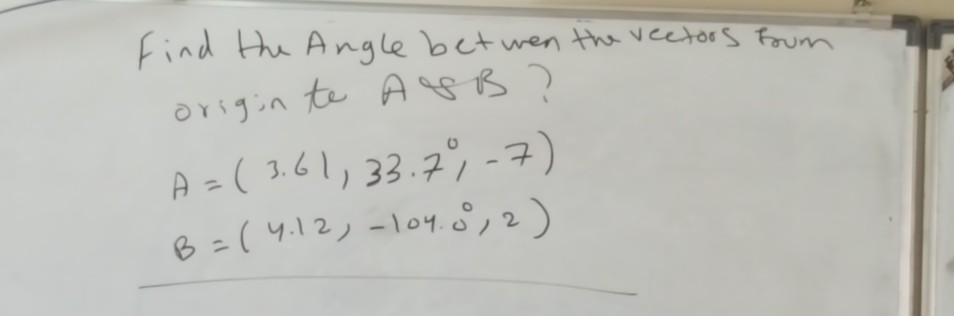 Find the Angle between the vectors from
origin to A & B ?
A = ( 3.61, 33.7°, -7 )
B = ( 4.12, -104.0°, 2 )